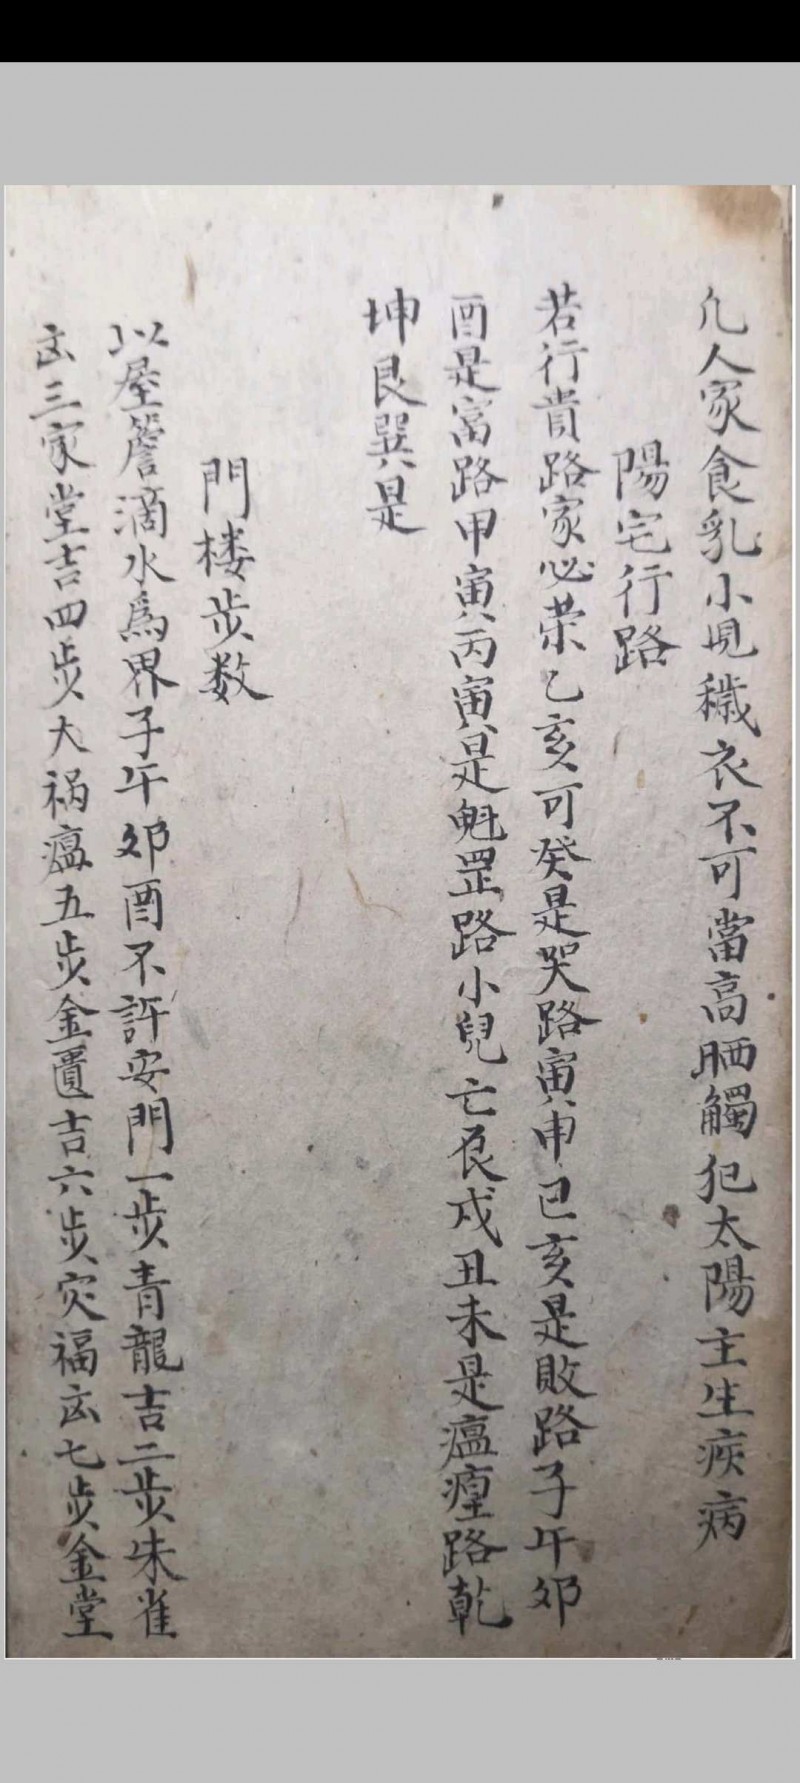 凢人家食乳小児穢衣不可當高晒觸犯太陽主生疾病
陽宅行路
若行貴路家必荣乙亥可癸是哭路寅申巳亥是敗路子午夘
酉是富路甲寅丙寅是魁罡路小兒亡辰戍丑未是瘟𤯝路乾
坤艮巽是
門楼步数
以屋簷滴水爲界子午夘酉不許安門一步青龍吉二步朱雀
㐫三家堂吉四步大禍瘟五步金匱吉六步灾福㐫七步金堂